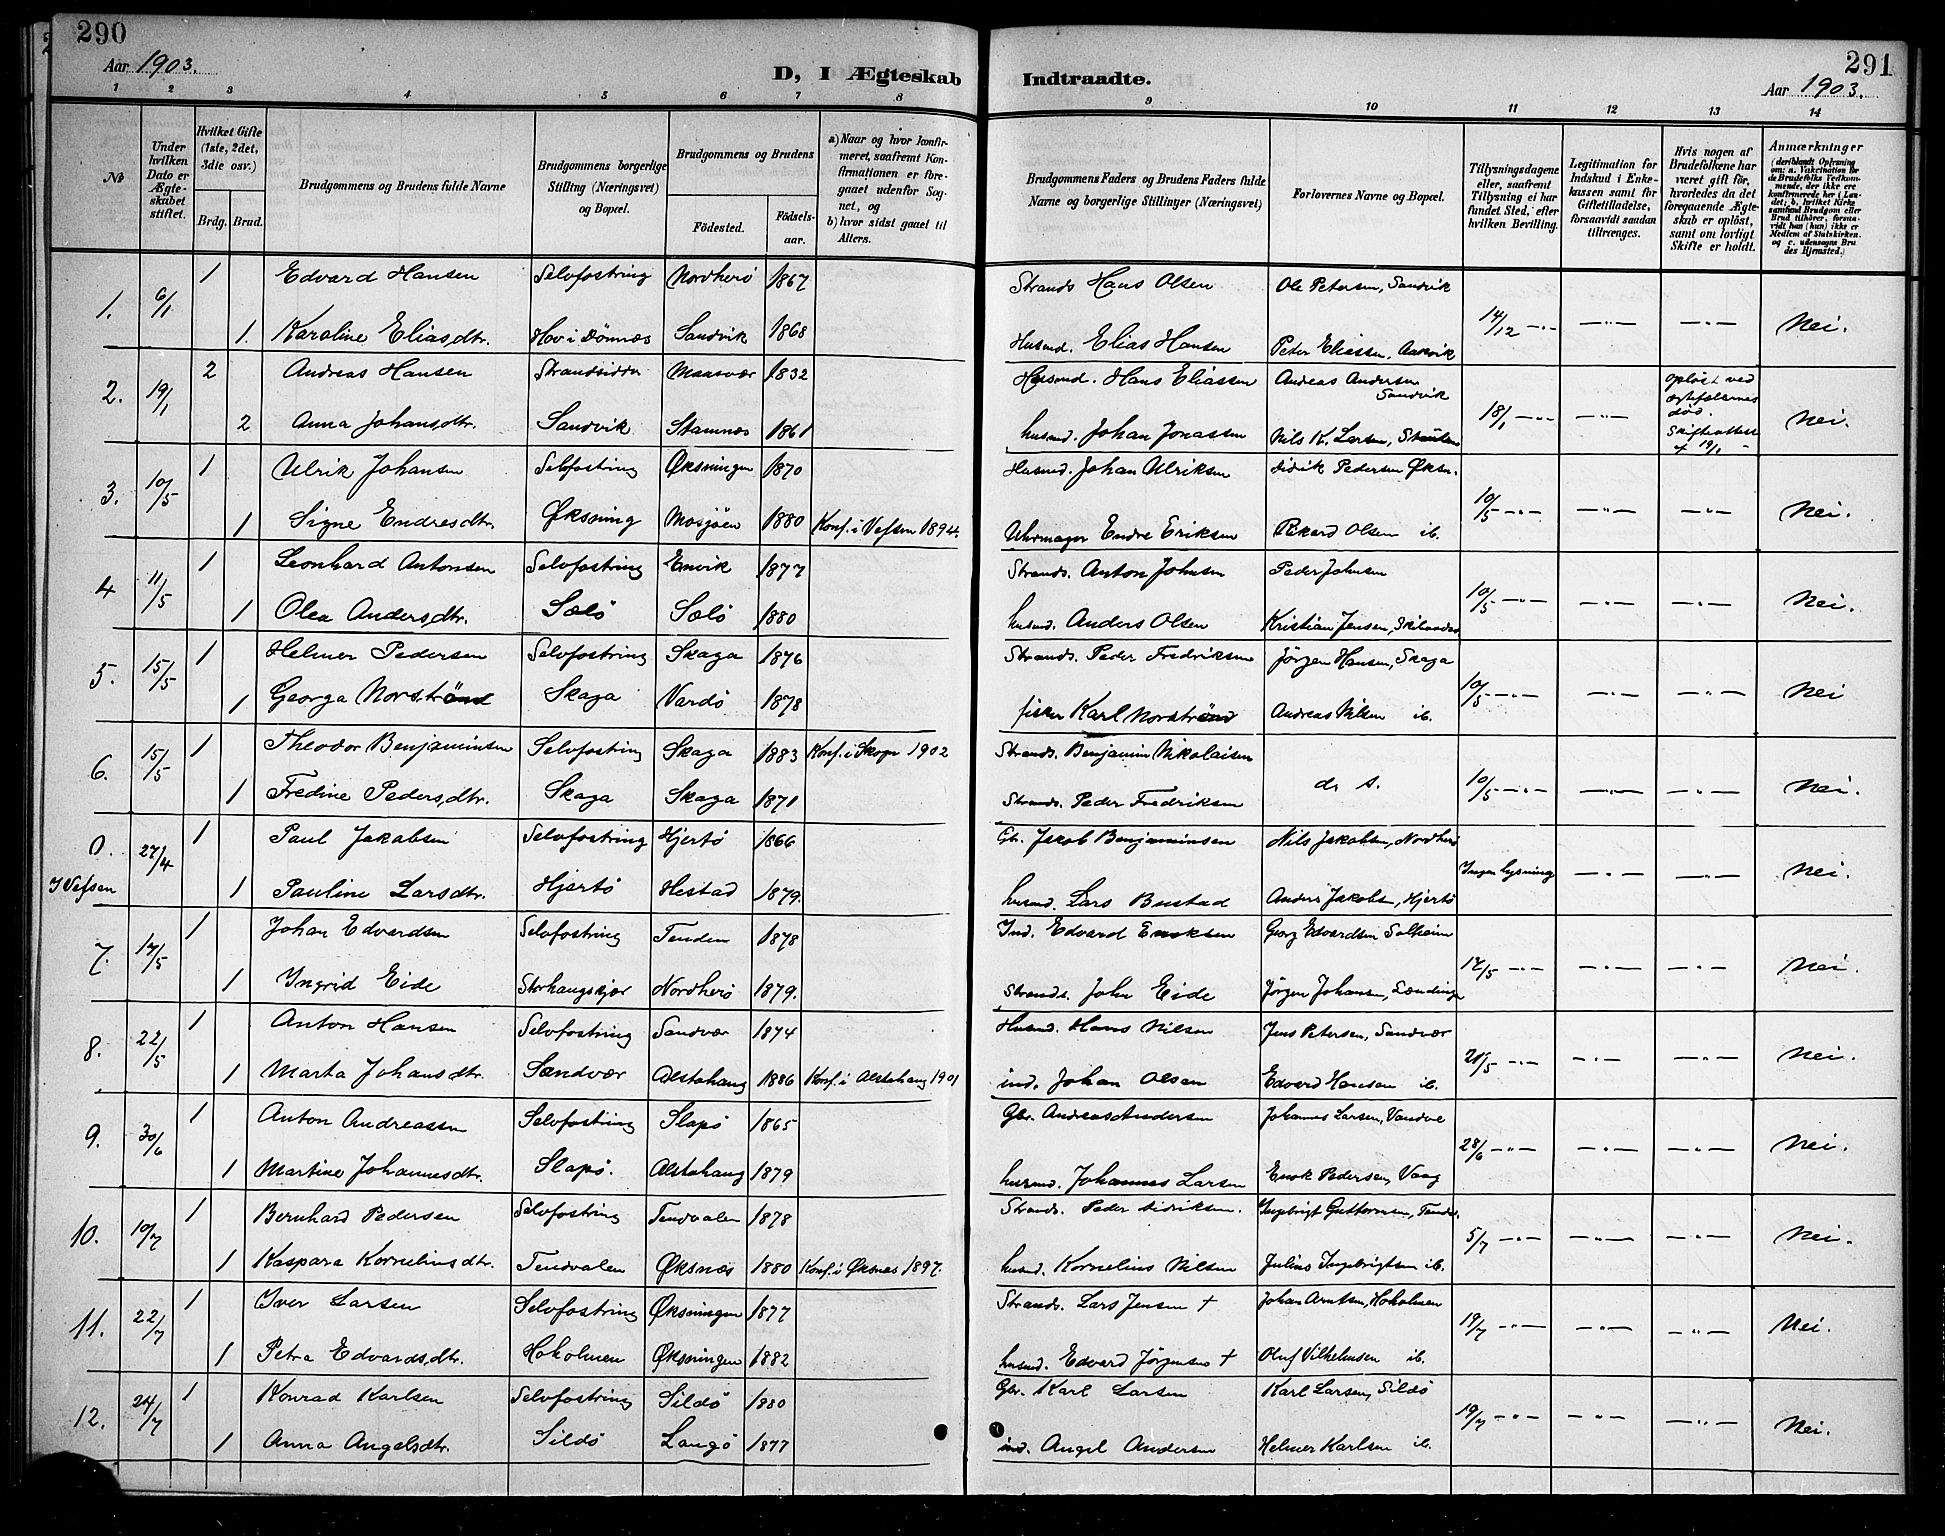 290
Aar 1903.
D, I Ægteskab
Indtraadte.
291
Aar 1903.
1 2 3 4 5 6 7 8 9 10 11 12 13 14
No
Under hvilken Dato er Ægteskabet stiftet.
Hvilket Gifte (1ste, 2det, 3die osv.)
Brdg. Brud.
Brudgommens og Brudens fulde Navne
Brudgommens borgerlige Stilling (Næringsvei) og Bopæl.
Brudgommens og Brudens
Födested.
Födselsaar.
a) Naar og hvor konfirmeret, saafremt Konfirmationen er foregaaet udenfor Sognet, og
b) hvor sidst gaaet til Alters.
Brudgommens Faders og Brudens Faders fulde Navne og borgerlige Stillinger (Næringsvei)
Forlovernes Navne og Bopæl.
Tillysningsdagene eller, saafremt Tillysning ei har fundet Sted, efter hvilken Bevilling.
Legitimation for Indskud i Enkekassen samt for Giftetilladelse, forsaavidt saadan tiltrænges.
Hvis nogen af Brudefolkene har været gift för, hvorledes da det foregaaende Ægteskab er oplöst, samt om lovligt Skifte er holdt.
Anmærkninger
(deriblandt Oplysning om: a. Vakcination for de Brudefolks Vedkommende, der ikke ere konfirmerede her i Landet; b. hvilket Kirkesamfund Brudgom eller Brud tilhörer, forsaavidt han (hun) ikke er Medlem af Statskirken, og c. udensogns Brudes Hjemsted.)
1. 6/1 1 Edvard Hansen Selvfostring Nordherö 1867 Strands Hans Olsen Ole Petersen, Sandvik 14/12 —"— —"— —"— Nei.
1. Karoline Eliasdtr. Hov i Dönnæs Sandvik 1868 Husmd. Elias Hansen Peter Eliassen, Aakvik
2. 19/1 2 Andreas Hansen Strandsidder Maasvær 1832 Husmd. Hans Eliassen Andreas Andersen Sandvik 18/1 —"— —"— Oplöst ved ægtefælernes död. Skifteattest af 19/1 Nei.
2 Anna Johansdtr. Sandvik Stamnes 1861 husmd. Johan Jonassen Nils K. Larsen,
3. 10/5 1 Ulrik Johansen Selvfostring Øksningen 1870 Husmd. Johan Ulriksen Didrik Pedersen Øksn. 10/5 —"— —"— —"— Nei.
1 Signe Endresdtr. Øksning Mosjöen 1880 Konf. i Vefsen 1894. Uhrmager Endre Eriksen Rikard Olsen ib.
4 11/5 1 Leonhard Antonsen Selvfostring Emvik 1877 Strands. Anton Johnsen Peder Johnsen 10/5 —"— —"— —"— Nei.
1 Olea Andersdtr. Sælö Sælö 1880 husmd. Anders Olsen Kristian Jensen,
5. 15/5 1 Helmer Pedersen Selvfostring Skaga 1876 Strands. Peder Fredriksen Jörgen Hansen, Skaga 10/5 —"— —"— —"— Nei
1 Georga Norströnd Skaga Vardö 1878 fisker Karl Norströnd Andreas Nilsen ib.
6. 15/5 1 Theodor Benjaminsen Selvfostring Skaga 1883 Konf. i Skogn 1902 Strands. Benjamin Nikolaisen d. s. 10/5 —"— —"— —"— Nei.
1 Fredine Pedersdtr. Skaga Skaga 1871 Strands. Peder Fredriksen
0. I Vefsen 27/4 1 Paul Jakobsen Selvfostring Hjertö 1866 Gb. Jakob Benjaminsen Nils Jakobsen, Nordherö Ingen lysning —"— —"— Nei.
1 Pauline Larsdtr. Hjertö Hestad 1879. husmd. Lars Bustad Anders Jakobsen, Hjertö
7. 17/5 1 Johan Edvardsen Selvfostring Tenden 1878 Ind. Edvard Enoksen Georg Edvardsen Solheim 17/5 —"— —"— —"— Nei.
1 Ingrid Eide Storhaugskjær Nordherö 1879. Strands. John Eide Jörgen Johansen,
8. 22/5 1 Anton Hansen Selvfostring Sandvær 1874 Husmd. Hans Nilsen Jens Petersen, Sandvær 21/5 —"— —"— —"— Nei.
1 Marta Johansdtr. Sandvær Alstahaug 1886 Konf. i Alstahaug 1901 ind. Johan Olsen Edvard Hansen ib.
9. 30/6 1 Anton Andreassen Selvfostring Slapö 1865 Gbr. Andreas Andersen Johannes Larsen, Vandve 28/6 —"— —"— —"— Nei.
1 Martine Johannesdtr. Slapö. Alstahaug 1879 husmd. Johannes Larsen Enok Pedersen, Vaag
10. 10/7 1 Bernhard Pedersen Selvfostring Tendvalen 1878 Strands. Peder Didriksen. Ingebrigt Guttormsen, 5/7 —"— —"— —"— Nei.
1 Kaspara Korneliusdtr. Tendvalen Øksnæs 1880 Konf. i Øksnæs 1897. husmd. Kornelius Nilsen Julius Ingebrigtsen ib.
11. 22/7 1 Iver Larsen Selvfostring Øksningen 1877 Strands. Lars Jensen † Johan Arntsen, Hokolmen 19/7 —"— —"— —"— Nei.
1 Petra Edvardsdtr. Hokolmen Øksningen 1882 husmd. Edvard Jörgensen † Oluf Vilhelmsen ib.
12. 24/7 1 Konrad Karlsen Selvfostring Sildö 1880 Gbr. Karl Larsen Karl Larsen, Sildö 19/7 —"— —"— —"— Nei.
1 Anna Angelsdtr. Sildö Langö 1877 ind. Angel Andersen Helmer Karlsen ib.